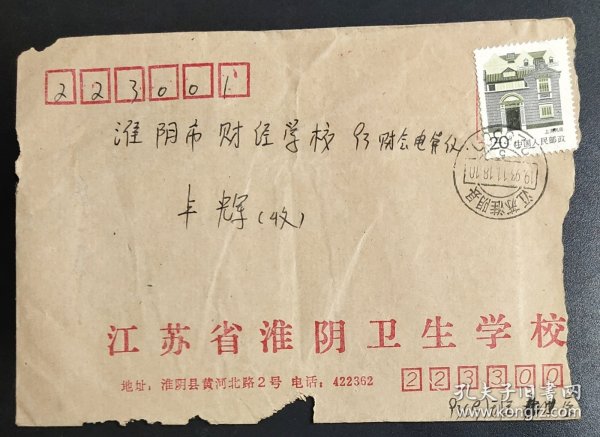 223001
淮阴市财经学校 93财会电算(2)
丰辉(收)
上海民居
20 中国人民邮政
江苏淮阴县
江苏省淮阴卫生学校
地址：淮阴县黄河北路2号 电话：422362
223300
孔夫子旧书网
kongfz.com